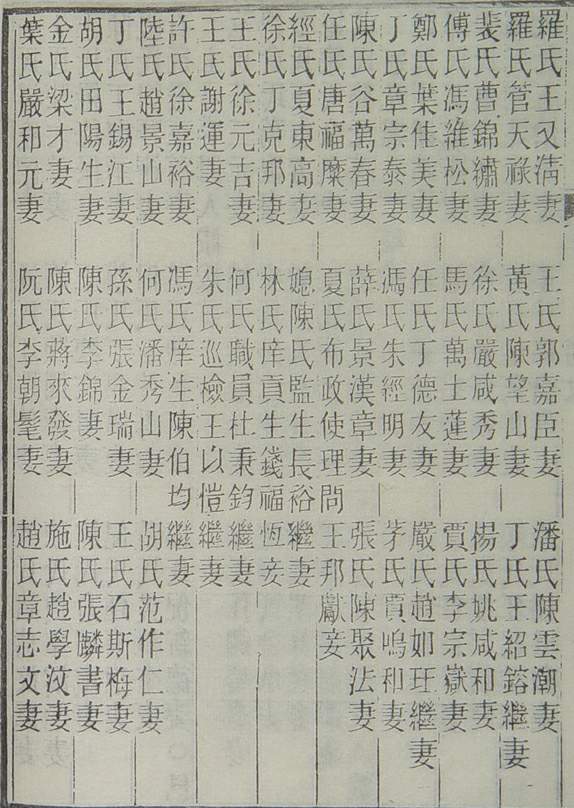 羅氏王又淸妻　王氏郭嘉臣妻　潘氏陳雲潮妻
羅氏管天祿妻　黃氏陳望山妻　丁氏王紹鎔繼妻
裴氏曹錦繡妻　徐氏嚴咸秀妻　楊氏姚咸和妻
傅氏馮維松妻　馬氏萬士蓮妻　賈氏李宗嶽妻
鄭氏葉佳美妻　任氏丁德友妻　嚴氏趙如玨繼妻
丁氏章宗泰妻　馮氏朱經明妻　茅氏賈鳴和妻
陳氏谷萬春妻　薛氏景漢章妻　張氏陳聚法妻
任氏唐福縻妻　夏氏布政使理問王邦獻妾
經氏夏東高妻　媳陳氏監生長裕繼妻
徐氏丁克邦妻　林氏庠貢生錢福恆妾
王氏徐元吉妻　何氏職員杜秉鈞繼妻
王氏謝運妻　朱氏巡檢王以愷繼妻
許氏徐嘉裕妻　馮氏庠生陳伯均繼妻
陸氏趙景山妻　何氏潘秀山妻　胡氏范作仁妻
丁氏王錫江妻　孫氏張金瑞妻　王氏石斯梅妻
胡氏田陽生妻　陳氏李錦妻　陳氏張麟書妻
金氏梁才妻　陳氏蔣來發妻　施氏趙學汶妻
葉氏嚴和元妻　阮氏李朝髦妻　趙氏章志文妻